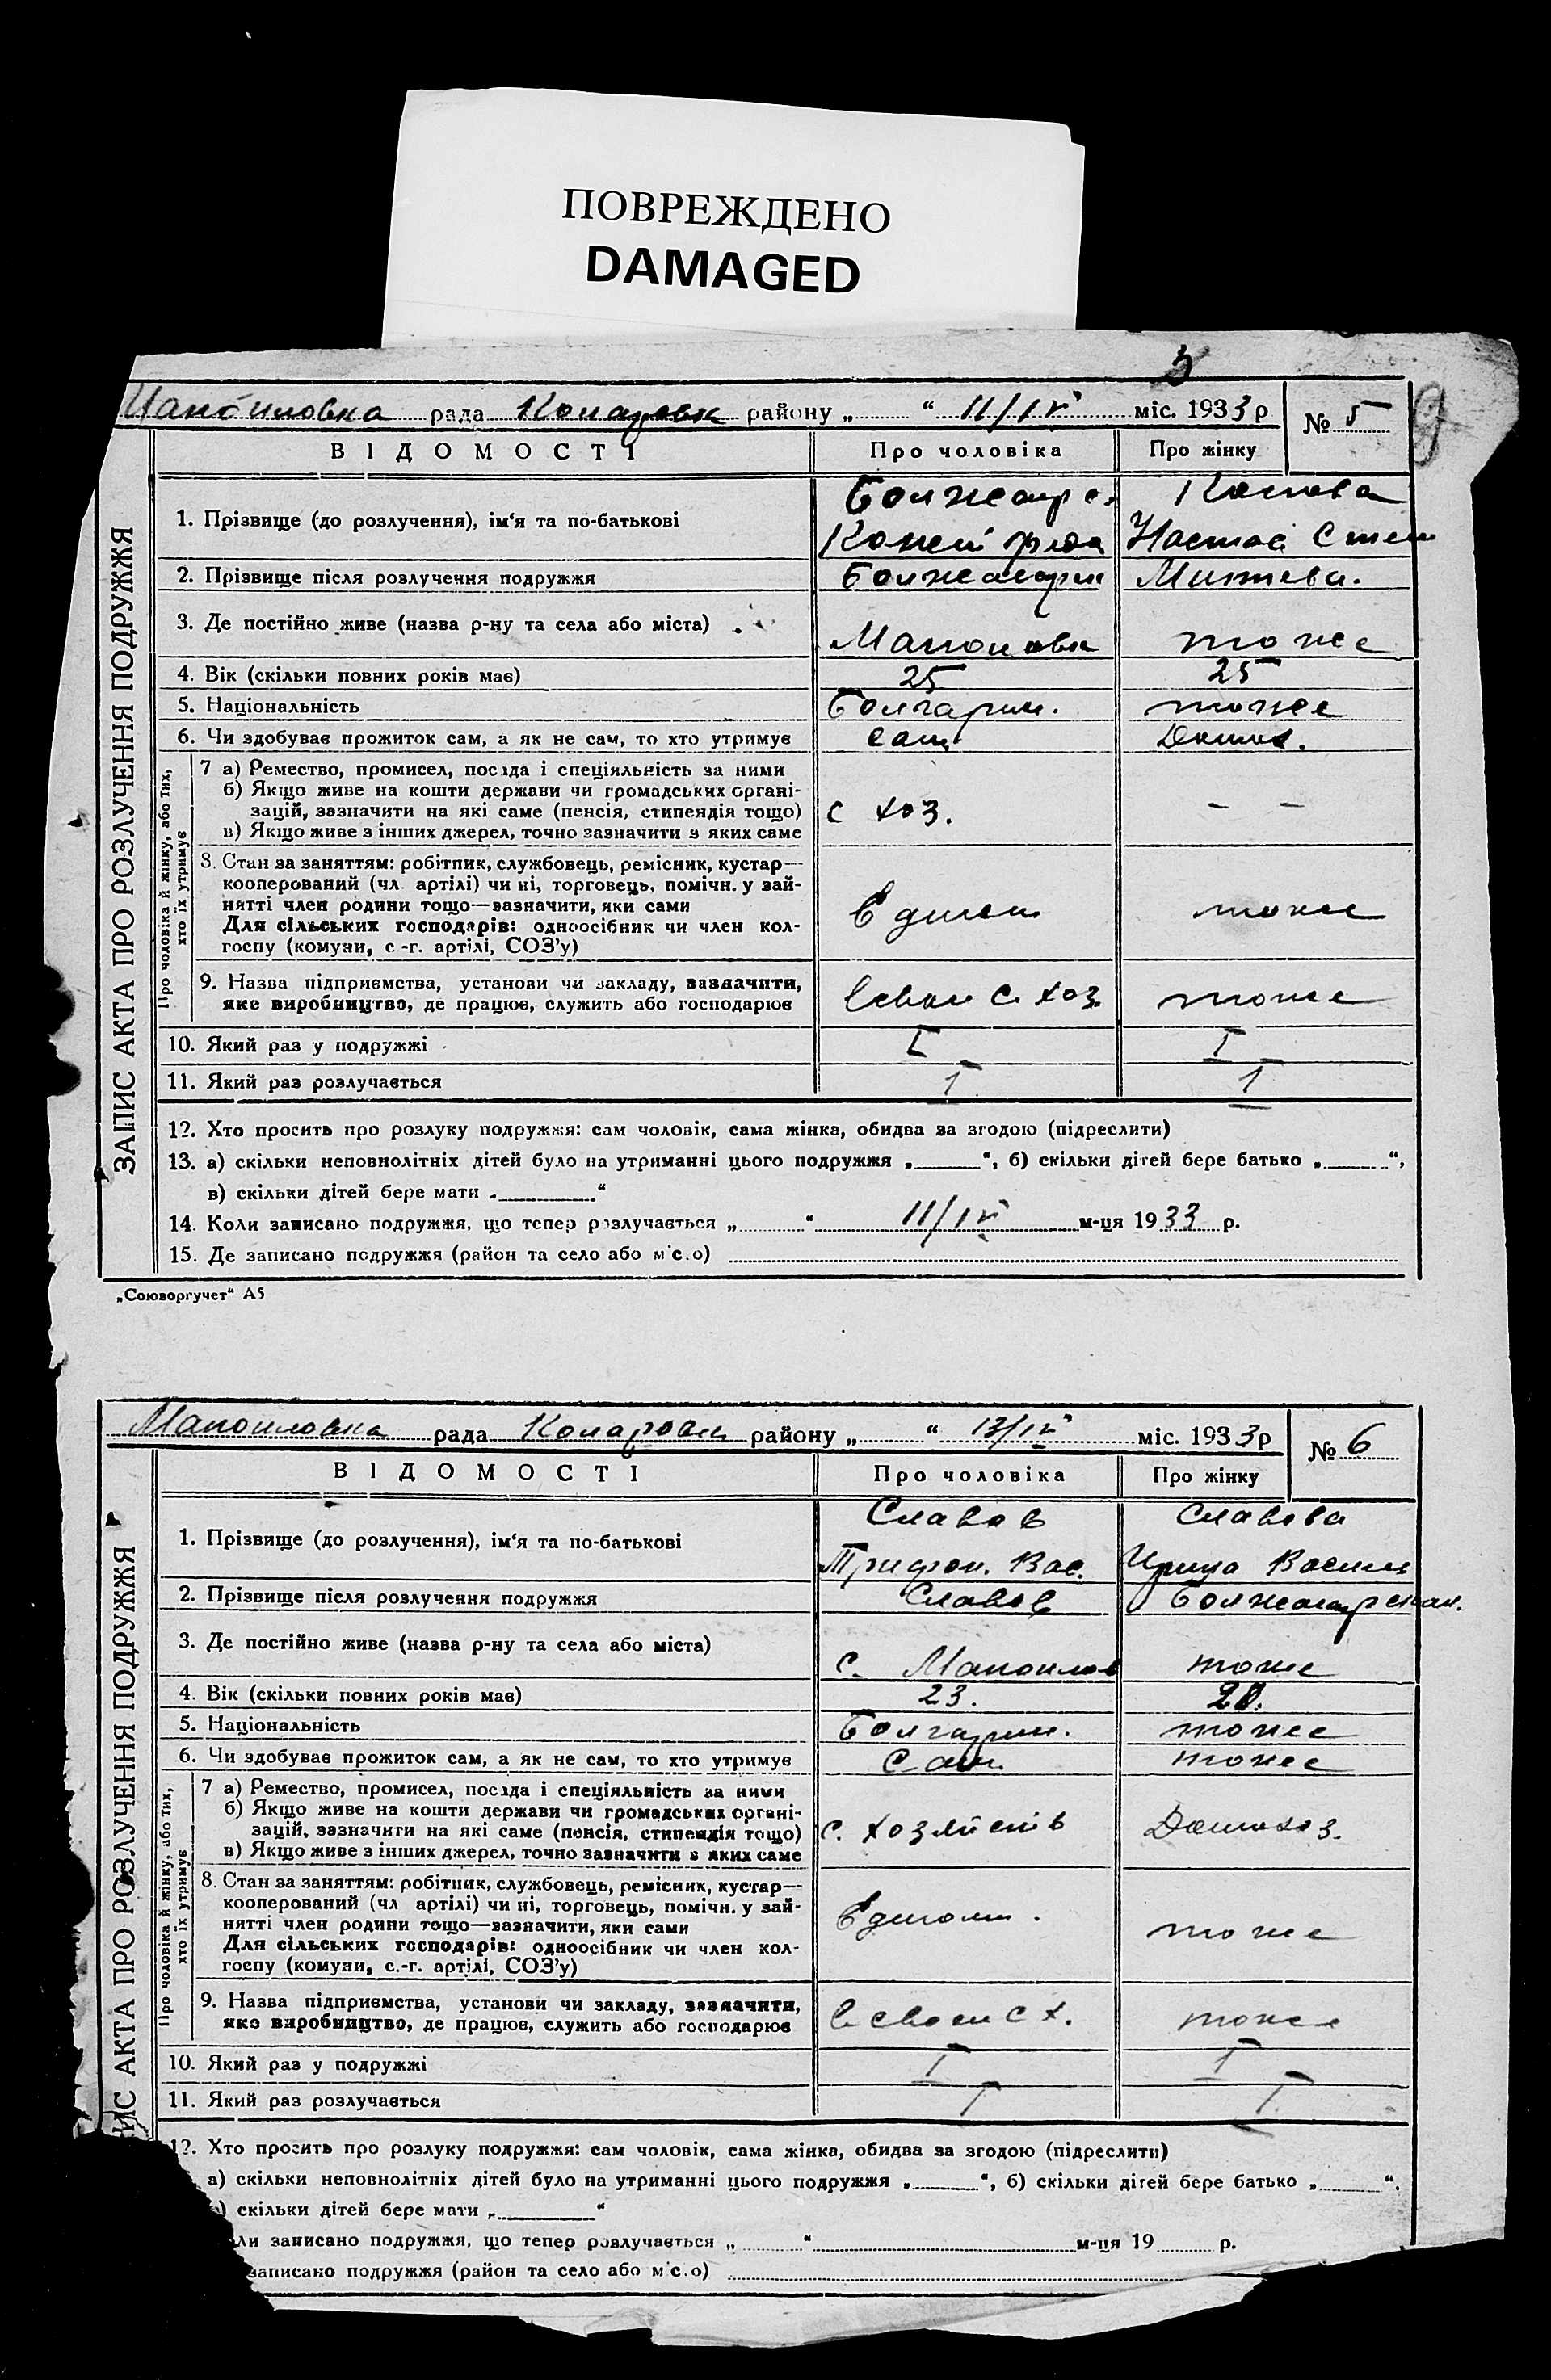 ПОВРЕЖДЕНО
DAMAGED
рада района району „ “ 11/IV міс. 1933 р № 5
ВІДОМОСТІ Про чоловіка Про жінку
ЗАПИС АКТА ПРО РОЗЛУЧЕННЯ ПОДРУЖЖЯ
1. Прізвище (до розлучення), ім‘я та по-батькові
2. Прізвище після розлучення подружжя
3. Де постійно живе (назва р-ну та села або міста) тоже
4. Вік (скільки повних років має) 25 25
5. Національність Болгарин. тоже
6. Чи здобував прожиток сам, а як не сам, то хто утримує сам Домох.
Про чоловіка й жінку, або тих, хто їх утримує
7 а) Ремество, промисел, посада і спеціяльність за ними
б) Якщо живе на кошти держави чи громадських органі-
зацій, зазначити на які саме (пенсія, стипендія тощо) с хоз. — —
в) Якщо живе з інших джерел, точно зазначити з яких саме
8. Стан за заняттям: робітник, службовець, ремісник, кустар—
кооперований (чл. артілі) чи ні, торговець, помічн. у зай-
нятті член родини тощо—зазначити, яки сами тоже
Для сільських господарів: одноосібник чи член кол-
госпу (комуни, с.-г. артілі, СОЗ’у)
9. Назва підприємства, установи чи закладу, зазначити, тоже
яке виробництво, де працює, служить або господарює
10. Який раз у подружжі I I
11. Який раз розлучається I I
12. Хто просить про розлуку подружжя: сам чоловік, сама жінка, обидва за згодою (підреслити)
13. а) скільки неповнолітніх дітей було на утриманні цього подружжя „ “, б) скільки дітей бере батько „ “,
в) скільки дітей бере мати „ “
14. Коли записано подружжя, що тепер розлучається „ “ 11/IV м-ця 1933 р.
15. Де записано подружжя (район та село або місо)
„Союзоргучет“ А5
Манойловка рада району „ “ 13/IV міс. 1933 р № 6
ВІДОМОСТІ Про чоловіка Про жінку
ИС АКТА ПРО РОЗЛУЧЕННЯ ПОДРУЖЖЯ
Славов Славова
1. Прізвище (до розлучення), ім‘я та по-батькові
Трифон. Вас.
2. Прізвище після розлучення подружжя Славов
3. Де постійно живе (назва р-ну та села або міста)
с. Манойлов тоже
4. Вік (скільки повних років має) 23.
5. Національність Болгарин. тоже
6. Чи здобував прожиток сам, а як не сам, то хто утримує Сам тоже
Про чоловіка й жінку, або тих, хто їх утримує
7 а) Ремество, промисел, посада і спеціяльність за ними
б) Якщо живе на кошти держави чи громадських органі-
зацій, зазначити на які саме (пенсія, стипендія тощо) Домохоз.
в) Якщо живе з інших джерел, точно зазначити з яких саме
8. Стан за заняттям: робітник, службовець, ремісник, кустар—
кооперований (чл артілі) чи ні, торговець, помічн. у зай-
нятті член родини тощо—зазначити, яки сами тоже
Для сільських господарів: одноосібник чи член кол-
госпу (комуни, с.-г. артілі, СОЗ’у)
9. Назва підприємства, установи чи закладу, зазначити,
яке виробництво, де працює, служить або господарює в своем с х. тоже
10. Який раз у подружжі I I
11. Який раз розлучається I I
12. Хто просить про розлуку подружжя: сам чоловік, сама жінка, обидва за згодою (підреслити)
а) скільки неповнолітніх дітей було на утриманні цього подружжя „ “, б) скільки дітей бере батько „ “.
) скільки дітей бере мати „ “
ли записано подружжя, що тепер розлучається „ “ м-ця 19 р.
записано подружжя (район та село або місо)